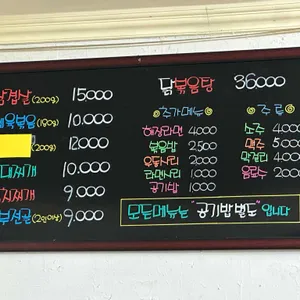 삼겹살 (200g) 15000
제육볶음 (180g) 10.000
(200g) 12000
대찌개 10.000
치찌개 9.000
부전골 (2인이상) 9,000
닭볶음탕 36000
추가메뉴
해장라면 4000
볶음밥 2500
우동사리 2000
라면사리 1000
공기밥 1000
주류
소주 4000
맥주 5000
막걸리 4000
음료수 2000
모든메뉴는 "공기밥별도" 입니다